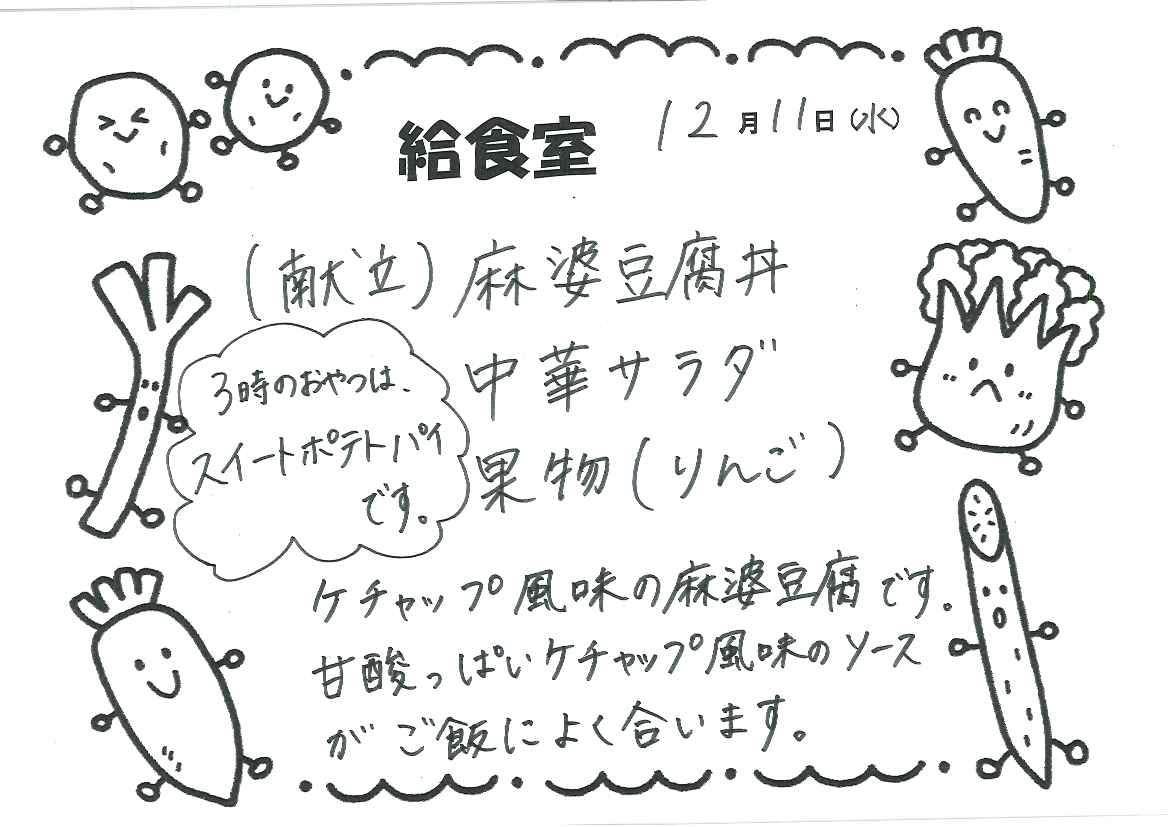 給食室 12月11日(水)
(献立) 麻婆豆腐丼
中華サラダ
果物(りんご)
3時のおやつは、
スイートポテトパイ
です。
ケチャップ風味の麻婆豆腐です。
甘酸っぱいケチャップ風味のソース
がご飯によく合います。